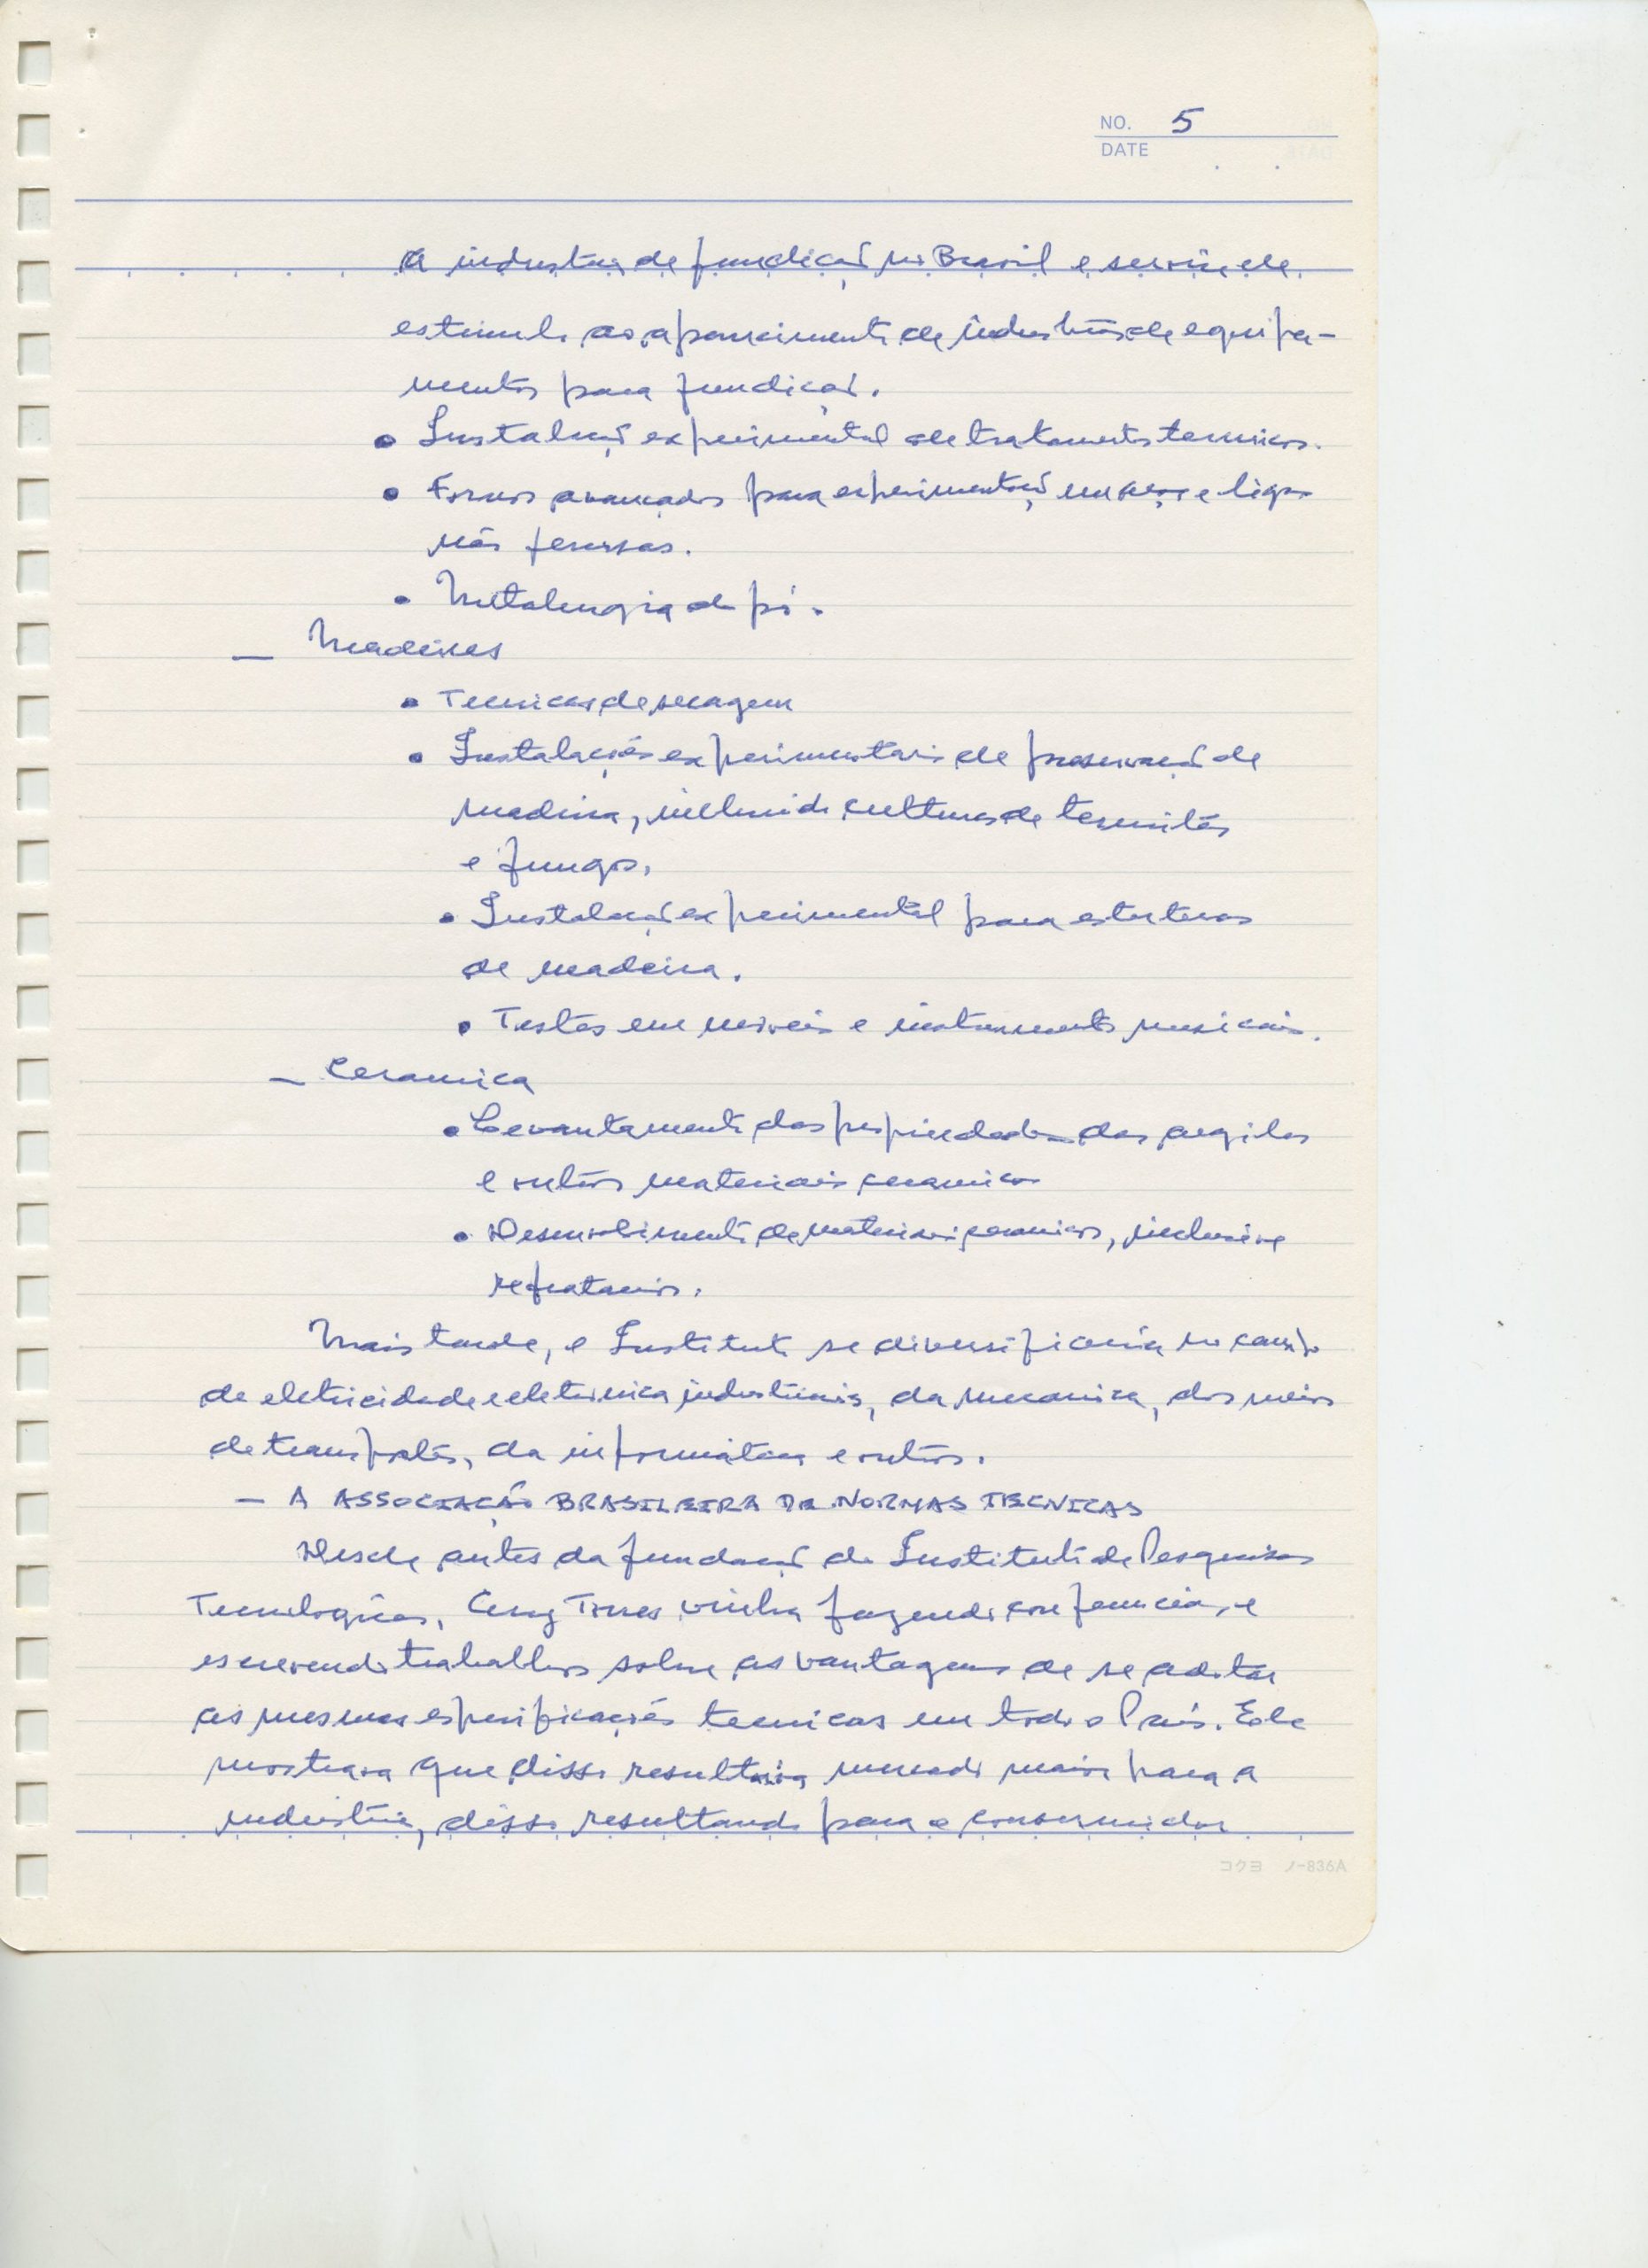 NO. 5
DATE
a industria de fundição no Brasil e serviu de
estimulo ao aparecimento de industrias de equipa-
mentos para fundição.
• Instalação experimental de tratamentos termicos.
• Fornos avançados para experimentação em aços e ligas
não ferrosas.
• Metalurgia do pó.
— Madeiras
• Tecnicas de secagem
• Instalações experimentais de preservação de
madeira, incluindo culturas de termitas
e fungos.
• Instalação experimental para estruturas
de madeira.
• Testes em moveis e instrumentos musicais.
— Ceramica
• Levantamento das propriedades das argilas
e outros materiais ceramicos
• Desenvolvimento de materiais ceramicos, inclusive
refratarios.
Mais tarde, o Instituto se diversificaria no campo
da eletricidade e eletronica industriais, da mecanica, dos meios
de transportes, da informatica e outros.
— A ASSOCIAÇÃO BRASILEIRA DE NORMAS TECNICAS
Desde antes da fundação do Instituto de Pesquisas
Tecnologicas, Ary Torres vinha fazendo conferencias e
escrevendo trabalhos sobre as vantagens de se adotar
as mesmas especificações tecnicas em todo o País. Ele
mostrava que disso resultaria mercado maior para a
industria, disso resultando para o consumidor
コクヨ ノ-836A